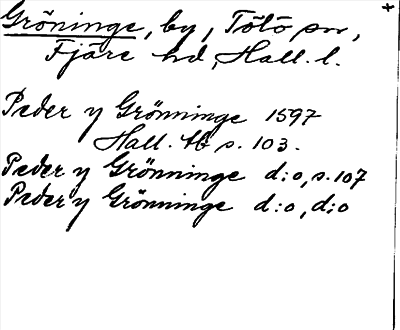 +
Gröninge, by, Tölö sn,
Fjäre hd, Hall. l.
Peder y Grönninge 1597
Hall. tb s. 103.
Peder y Grönninge d:o, s. 107
Peder y Grönninge d:o, d:o